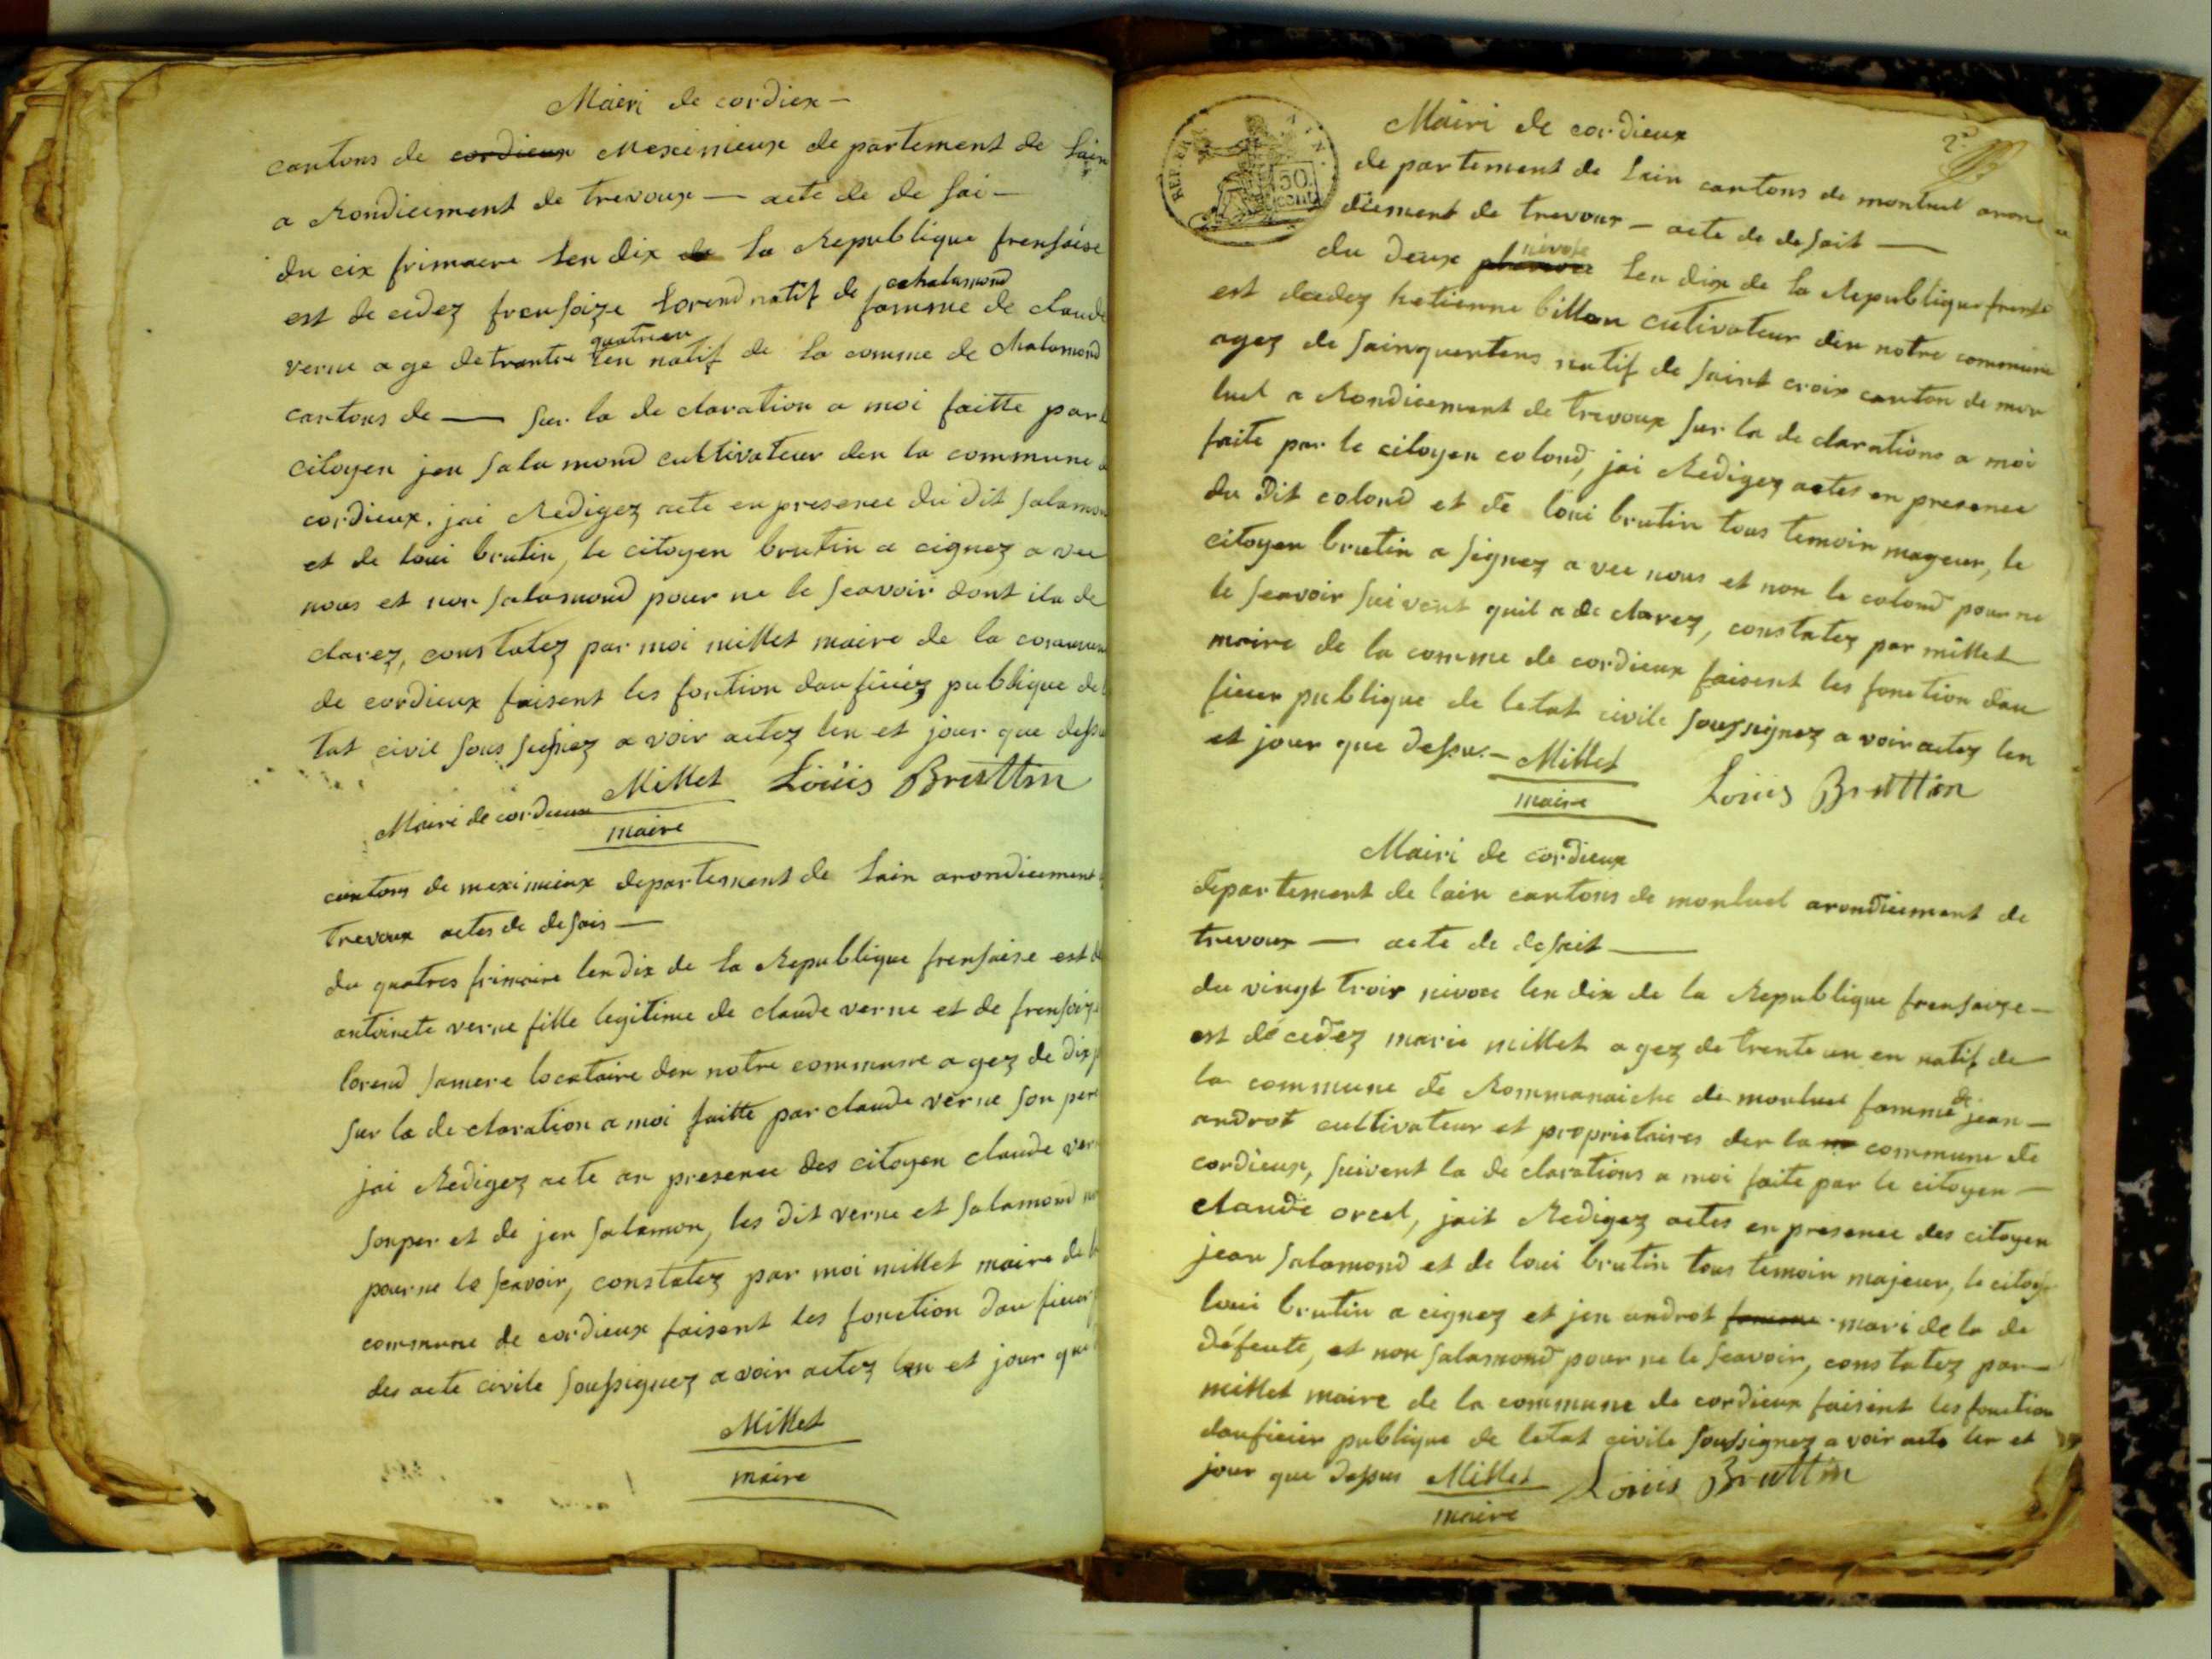 Mairi de cordiex –
cantons de cordieux Meximieux de partement de Lain
a Rondicement de trevoux — acte de de sai –
du cix frimaire Len dix de La Republique frensaise
est de cedez frensaize Lorend natif de chalamond famme de claude
verne age de trante quatrien en natif de La comme de chalamond
cantons de — sur la de claration a moi faitte par
citoyen jen salamond cultivateur den la commune
cordieux, jai Redigez acte en presence du dit salamon
et de loui brutin, le citoyen brutin a cignez a vec
nous et non salamond pour ne le scavoir dont ila de
clarez, constatez par moi millet maire de la commun
de cordieux faisent les fontion dauficiez publique de
tat civil sous a voir actez len et jour que dessu
Millet Louis Bruttin
Mairi de cordieux
maire
cantons de meximieux departement de Lain arondicement
trevoux actes de desais —
du quatres frimaire len dix de la Republique frensaise est
antoinete verne fille legitime de claude verne et de frensoize
lorend samere locataire den notre commune agez de dix
sur la de claration a moi faitte par claude verne son pere
jai Redigez acte an presence des citoyen claude ver
sonper et de jen salamon, les dit verne et salamond
pourne le scavoir, constatez par moi millet maire de
commune de cordieux faisent les fonction daufician
des acte civile soussignez a voir actez len et jour que
Millet
maire
2e
Mairi de cordieux
REP. FRAN.
50 cent
de partement de Lain cantons de montuel aron
dicement de trevoux — acte de desait —
du deux nivose Len dix de la Republique frense
est decdez hetienne billon cutivateur den notre commune
agez de sainquentens natif de saint croix canton de mon
luel a Rondicement de trevoux sur la de clarations a moi
faite par le citoyen colond, jai Redigez actes en presence
du dit colond et de loui brutin tous temoin mageur, le
citoyen brutin a signez a vec nous et non le colond pour ne
le scavoir suivent quil a de clarez, constatez par millet
maire de la comme de cordieux faisent les fonction dau
ficier publique de letat civile soussignez a voir actez len
et jour que dessu. – Millet
maire
Louis Bruttin
Mairi de cordieux
departement de lain cantons de monluel arondicement de
trevoux — acte de desait —
du vingt trois nivose len dix de la Republique fransaize –
est décedez marie millet agez de trente un en natif de
la commune de Rommanaiche de monluel famme de jean –
androt cultivateur et proprietaires den la commune de
cordieux, suivent la de clarations a moi faite par le citoyen –
claude orcel, jait Redigez actes en presence des citoyen
jean salamond et de loui brutin tous temoin majeur, le citoy
loui brutin a cignez et jen androt famme mari de la de
défeute, et non salamond pour ne le scavoir, constatez par
millet maire de la commune de cordieux faisent les fonction
dauficier publique de letat civile soussignez a voir acte len et
jour que dessus Millet Louis Bruttin
maire